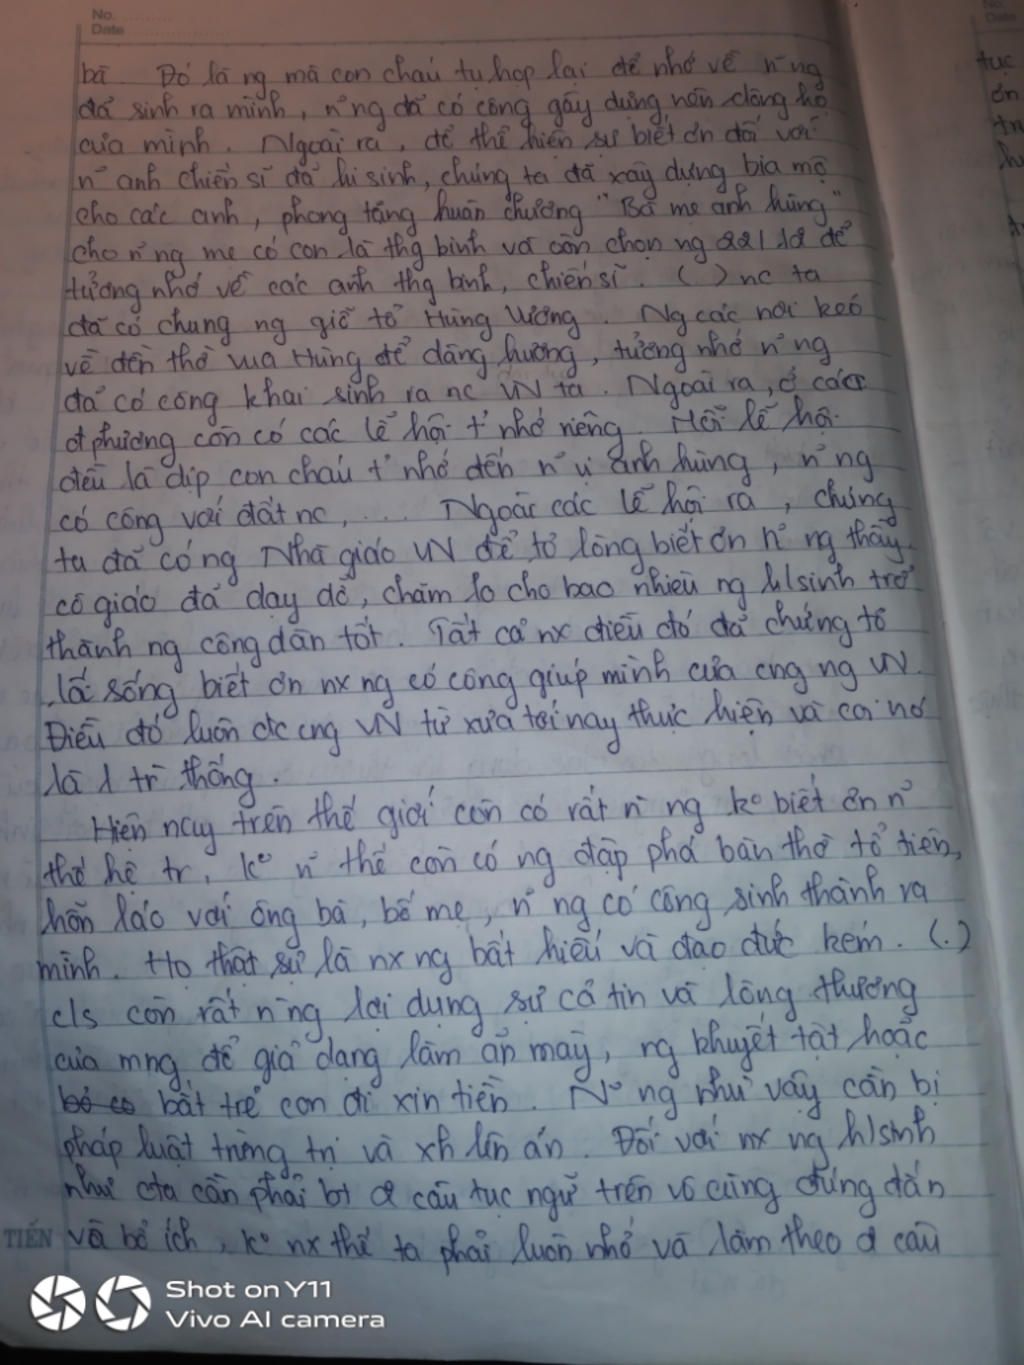 No.
Date
bà. Đó là ng mà con cháu tụ họp lại để nhớ về n~ng
đã sinh ra mình, n~ng đã có công gây dựng nên dòng họ
của mình. Ngoài ra, để thể hiện sự biết ơn đối với
n~ anh chiến sĩ đã hi sinh, chúng ta đã xây dựng bia mộ
cho các anh, phong tặng huân chương "Bà mẹ anh hùng"
cho n~ng mẹ có con là thg binh và còn chọn ng 22/12 để
tưởng nhớ về các anh thg binh, chiến sĩ. ( ) nc ta
đã có chung ng giỗ tổ Hùng Vương. Ng các nơi kéo
về đền thờ vua Hùng để dâng hương, tưởng nhớ n~ng
đã có công khai sinh ra nc VN ta. Ngoài ra, ở các
đ phương còn có các lễ hội t' nhớ riêng. Mỗi lễ hội
đều là dịp con cháu t' nhớ đến n~ vị anh hùng, n~ng
có công với đất nc, .... Ngoài các lễ hội ra, chúng
ta đã có ng Nhà giáo VN để tỏ lòng biết ơn n~ng thầy
cô giáo đã dạy dỗ, chăm lo cho bao nhiêu ng h/sinh trở
thành ng công dân tốt. Tất cả nx điều đó đã chứng tỏ
lối sống biết ơn nx ng có công giúp mình của cng ng VN.
Điều đó luôn đc cng VN từ xưa tới nay thực hiện và coi nó
là 1 tr` thống.
Hiện nay trên thế giới còn có rất n` ng ko biết ơn n~
thế hệ tr', ko n~ thế còn có ng đập phá bàn thờ tổ tiên,
hỗn láo với ông bà, bố mẹ, n~ng có công sinh thành ra
mình. Họ thật sự là nx ng bất hiếu và đạo đức kém. (.)
c/s còn rất n` ng lợi dụng sự cả tin và lòng thương
của mng để giả dạng làm ăn mày, ng khuyết tật hoặc
bắt trẻ con đi xin tiền. N~ng như vậy cần bị
pháp luật trừng trị và xh lên án. Đối với nx ng h/sinh
như cta cần phải bt đ câu tục ngữ trên vô cùng đúng đắn
TIẾN và bổ ích, ko nx thế ta phải luôn nhớ và làm theo đ câu
tục
ơn
Shot on Y11
Vivo AI camera